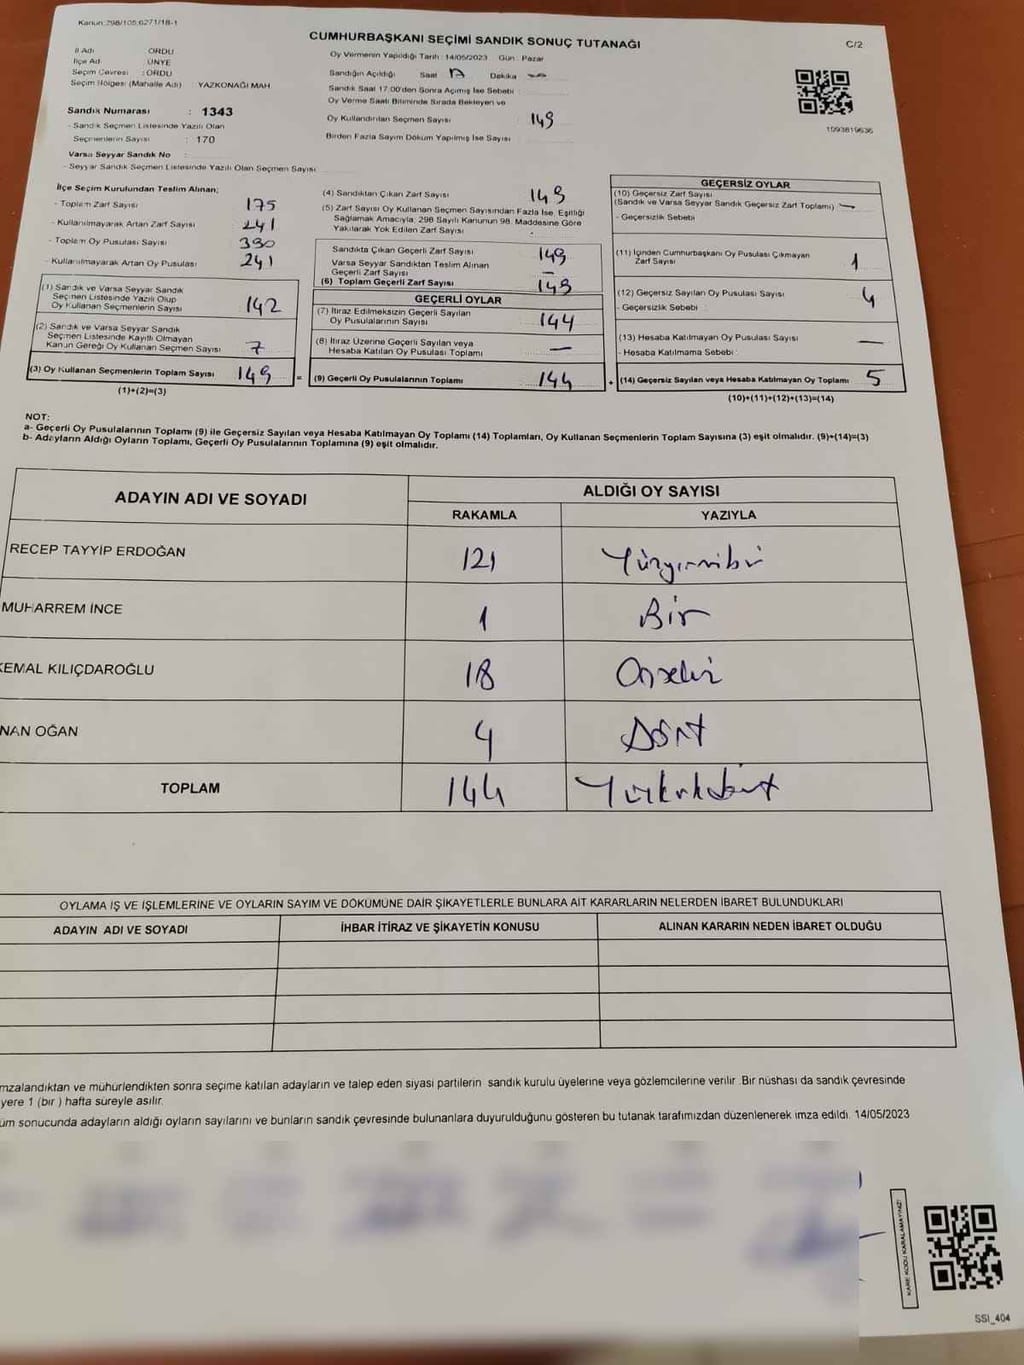 Kanun:298/105;6271/18-1
CUMHURBAŞKANI SEÇİMİ SANDIK SONUÇ TUTANAĞI
C/2
İl Adı : ORDU
İlçe Adı : ÜNYE
Seçim Çevresi : ORDU
Seçim Bölgesi (Mahalle Adı) : YAZKONAĞI MAH
Sandık Numarası : 1343
- Sandık Seçmen Listesinde Yazılı Olan
Seçmenlerin Sayısı : 170
Varsa Seyyar Sandık No :
- Seyyar Sandık Seçmen Listesinde Yazılı Olan Seçmen Sayısı :
Oy Vermenin Yapıldığı Tarih : 14/05/2023 Gün : Pazar
Sandığın Açıldığı Saat 17 Dakika
Sandık Saat 17:00'den Sonra Açılmış İse Sebebi :
Oy Verme Saati Bitiminde Sırada Bekleyen ve
Oy Kullandırılan Seçmen Sayısı : 149
Birden Fazla Sayım Döküm Yapılmış İse Sayısı :
1093819636
İlçe Seçim Kurulundan Teslim Alınan;
- Toplam Zarf Sayısı : 175
- Kullanılmayarak Artan Zarf Sayısı : 241
- Toplam Oy Pusulası Sayısı : 390
- Kullanılmayarak Artan Oy Pusulası : 241
(1) Sandık ve Varsa Seyyar Sandık
Seçmen Listesinde Yazılı Olup
Oy Kullanan Seçmenlerin Sayısı 142
(2) Sandık ve Varsa Seyyar Sandık
Seçmen Listesinde Kayıtlı Olmayan
Kanun Gereği Oy Kullanan Seçmen Sayısı 7
(3) Oy Kullanan Seçmenlerin Toplam Sayısı 149 =
(1)+(2)=(3)
(4) Sandıktan Çıkan Zarf Sayısı : 149
(5) Zarf Sayısı Oy Kullanan Seçmen Sayısından Fazla İse, Eşitliği
Sağlamak Amacıyla; 298 Sayılı Kanunun 98. Maddesine Göre
Yakılarak Yok Edilen Zarf Sayısı :
Sandıkta Çıkan Geçerli Zarf Sayısı 149
Varsa Seyyar Sandıktan Teslim Alınan
Geçerli Zarf Sayısı —
(6) Toplam Geçerli Zarf Sayısı 149
GEÇERLİ OYLAR
(7) İtiraz Edilmeksizin Geçerli Sayılan
Oy Pusulalarının Sayısı 144
(8) İtiraz Üzerine Geçerli Sayılan veya
Hesaba Katılan Oy Pusulası Toplamı —
(9) Geçerli Oy Pusulalarının Toplamı 144 +
GEÇERSİZ OYLAR
(10) Geçersiz Zarf Sayısı
(Sandık ve Varsa Seyyar Sandık Geçersiz Zarf Toplamı) —
- Geçersizlik Sebebi :
(11) İçinden Cumhurbaşkanı Oy Pusulası Çıkmayan
Zarf Sayısı 1
(12) Geçersiz Sayılan Oy Pusulası Sayısı 4
- Geçersizlik Sebebi :
(13) Hesaba Katılmayan Oy Pusulası Sayısı —
- Hesaba Katılmama Sebebi :
(14) Geçersiz Sayılan veya Hesaba Katılmayan Oy Toplamı 5
(10)+(11)+(12)+(13)=(14)
NOT:
a- Geçerli Oy Pusulalarının Toplamı (9) ile Geçersiz Sayılan veya Hesaba Katılmayan Oy Toplamı (14) Toplamları, Oy Kullanan Seçmenlerin Toplam Sayısına (3) eşit olmalıdır. (9)+(14)=(3)
b- Adayların Aldığı Oyların Toplamı, Geçerli Oy Pusulalarının Toplamına (9) eşit olmalıdır.
ADAYIN ADI VE SOYADI
ALDIĞI OY SAYISI
RAKAMLA YAZIYLA
RECEP TAYYİP ERDOĞAN 121 Yüzyirmibir
MUHARREM İNCE 1 Bir
KEMAL KILIÇDAROĞLU 18 Onsekiz
NAN OĞAN 4 Dört
TOPLAM 144 Yüzkırkdört
OYLAMA İŞ VE İŞLEMLERİNE VE OYLARIN SAYIM VE DÖKÜMÜNE DAİR ŞİKAYETLERLE BUNLARA AİT KARARLARIN NELERDEN İBARET BULUNDUKLARI
ADAYIN ADI VE SOYADI İHBAR İTİRAZ VE ŞİKAYETİN KONUSU ALINAN KARARIN NEDEN İBARET OLDUĞU
mzalandıktan ve mühürlendikten sonra seçime katılan adayların ve talep eden siyasi partilerin sandık kurulu üyelerine veya gözlemcilerine verilir. Bir nüshası da sandık çevresinde
yere 1 (bir) hafta süreyle asılır.
üm sonucunda adayların aldığı oyların sayılarını ve bunların sandık çevresinde bulunanlara duyurulduğunu gösteren bu tutanak tarafımızdan düzenlenerek imza edildi. 14/05/2023
KARE KODU KARALAMAYINIZ!
SSI_404